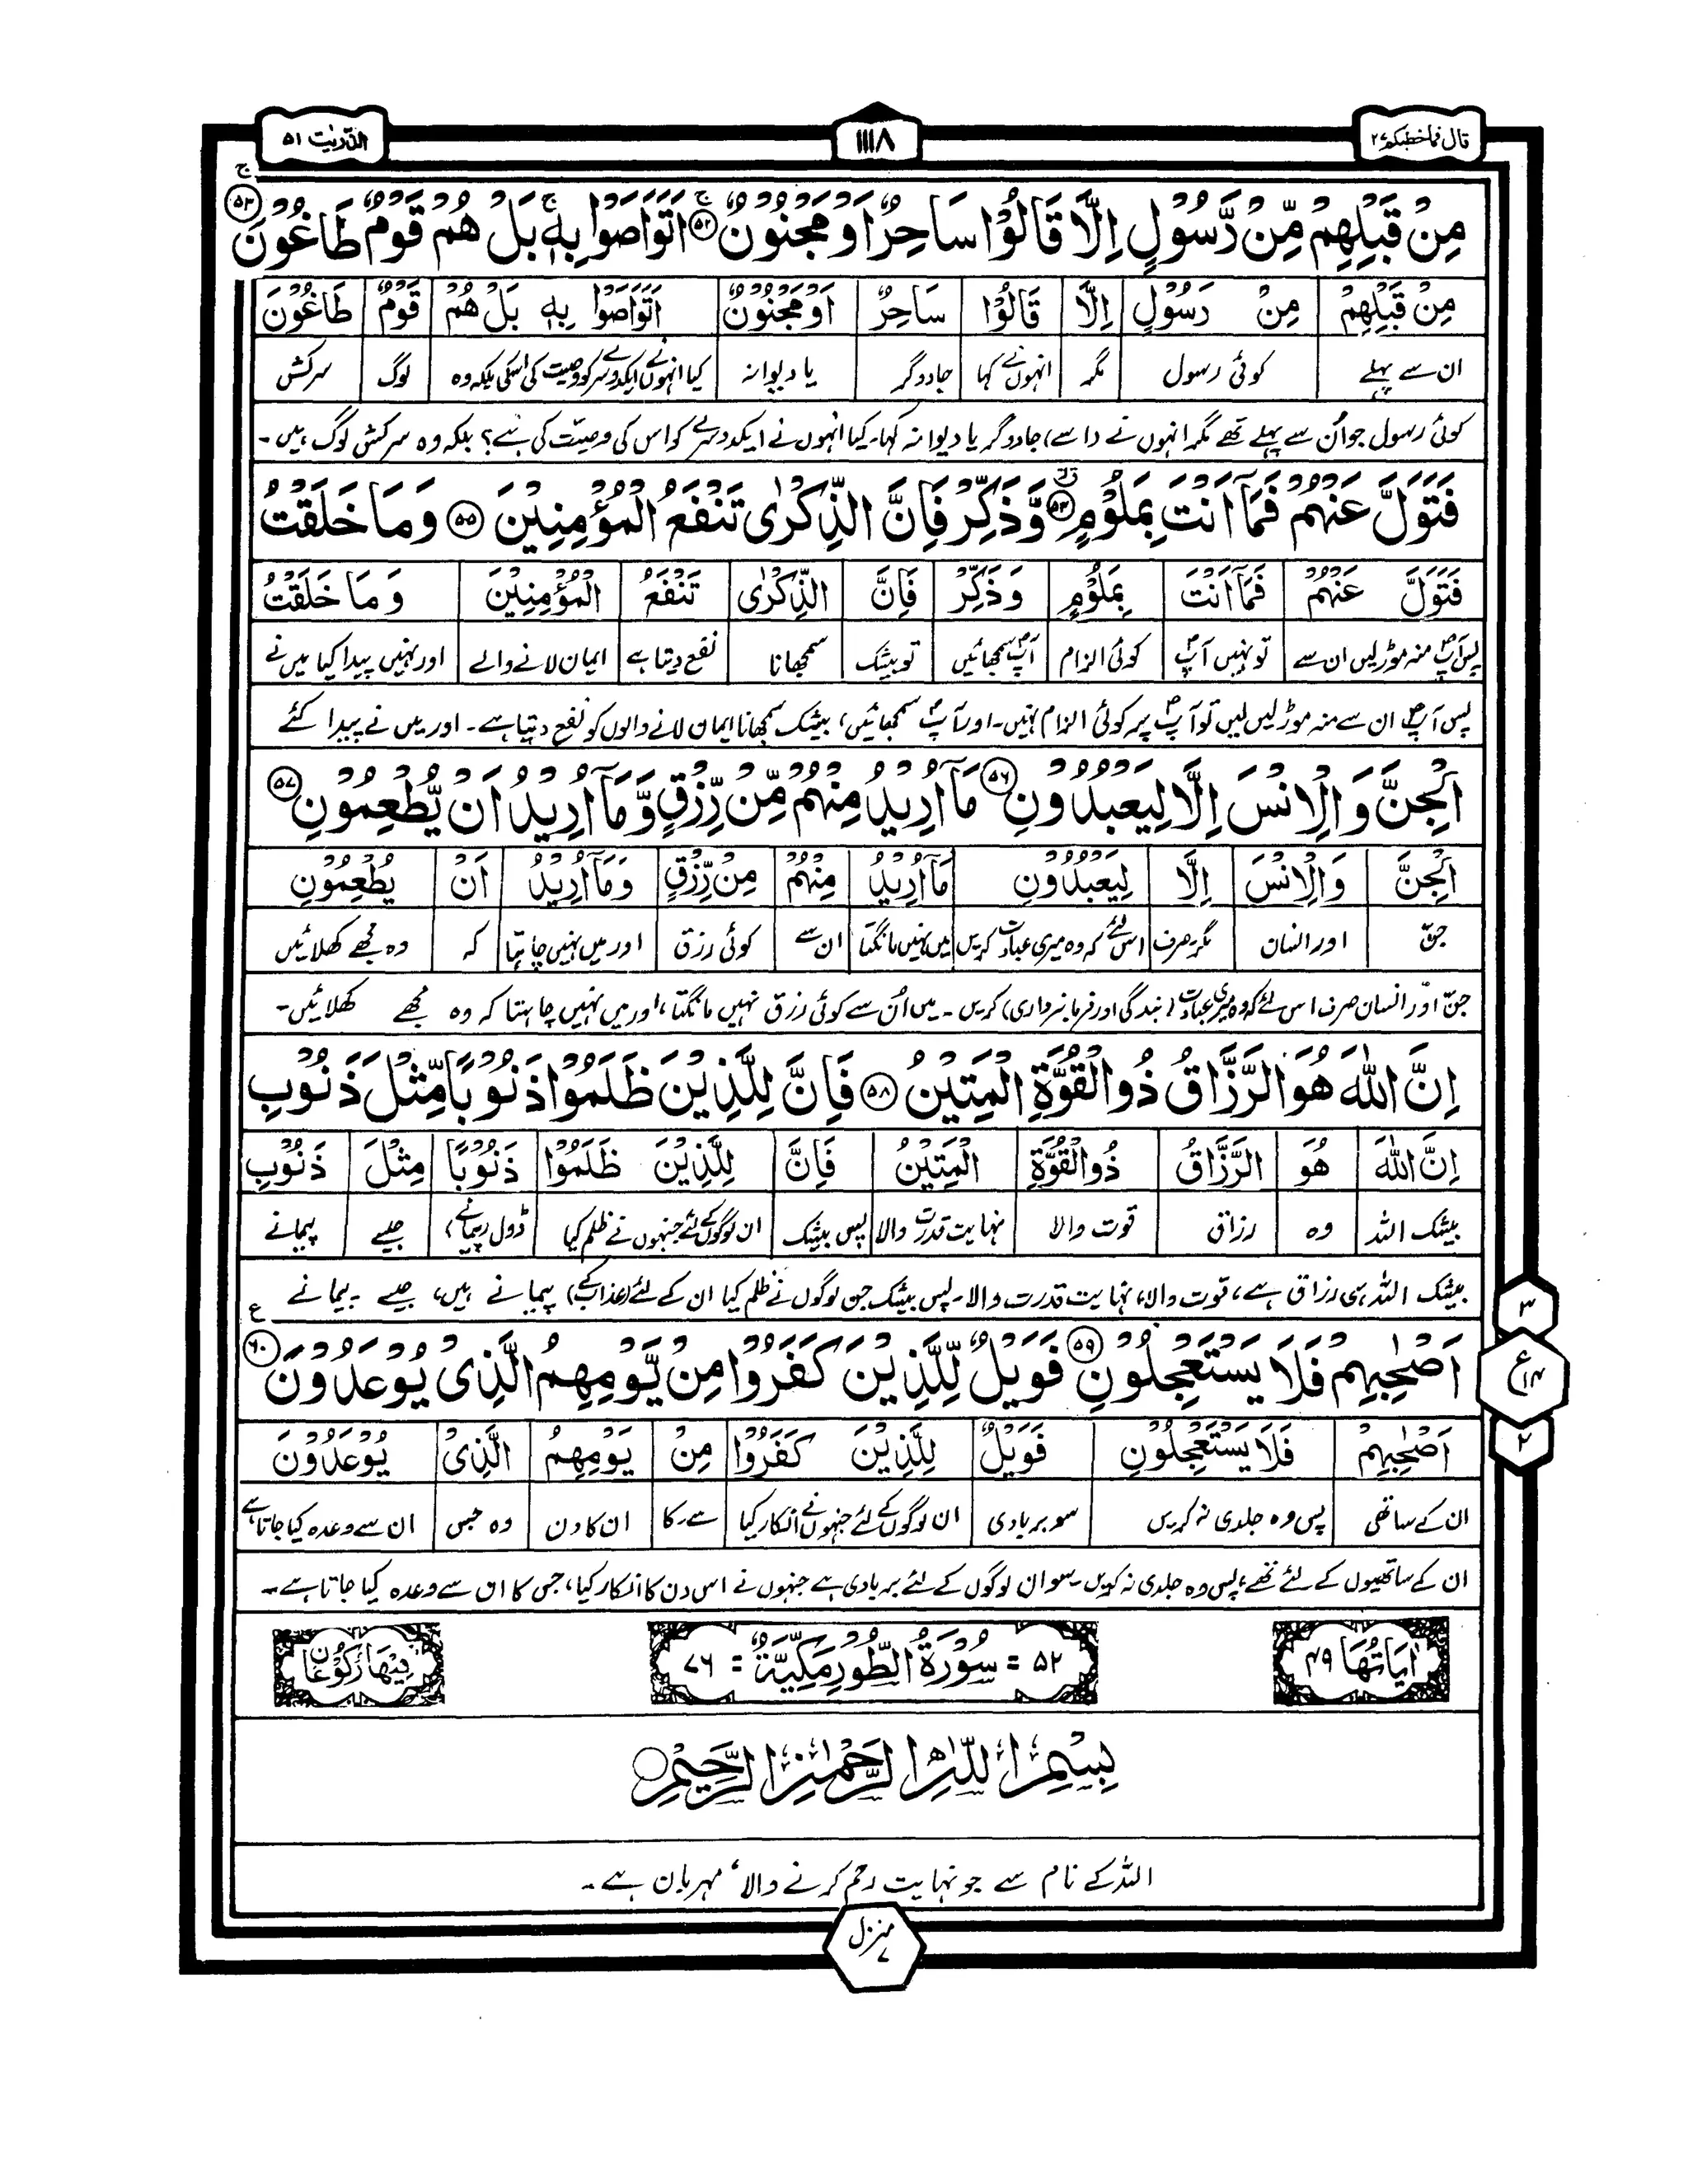 قال فما خطبکم ۲۷
۱۱۱۸
الذّٰریٰت ۵۱
مِنْ قَبْلِهِمْ مِّنْ رَّسُوْلٍ اِلَّا قَالُوْا سَاحِرٌ اَوْ مَجْنُوْنٌ ۵۲ اَتَوَاصَوْا بِهٖ بَلْ هُمْ قَوْمٌ طَاغُوْنَ ۵۳
مِنْ قَبْلِهِمْ مِنْ رَسُوْلٍ اِلَّا قَالُوْا سَاحِرٌ اَوْ مَجْنُوْنٌ اَتَوَاصَوْا بِهٖ بَلْ هُمْ قَوْمٌ طَاغُوْنَ
ان سے پہلے کوئی رسول مگر انہوں نے کہا جادوگر یا دیوانہ کیا انہوں نے ایک دوسرے کو وصیت کی اسکی بلکہ وہ لوگ سرکش
کوئی رسول جو اُن سے پہلے تھے مگر انہوں نے (اسے) جادوگر یا دیوانہ کہا۔ کیا انہوں نے ایک دوسرے کو اس کی وصیّت کی ہے؟ بلکہ وہ سرکش لوگ ہیں۔
فَتَوَلَّ عَنْهُمْ فَمَآ اَنْتَ بِمَلُوْمٍ ۵۴ وَّذَكِّرْ فَاِنَّ الذِّكْرٰى تَنْفَعُ الْمُؤْمِنِيْنَ ۵۵ وَمَا خَلَقْتُ
فَتَوَلَّ عَنْهُمْ فَمَآ اَنْتَ بِمَلُوْمٍ وَذَكِّرْ فَاِنَّ الذِّكْرٰى تَنْفَعُ الْمُؤْمِنِيْنَ وَمَا خَلَقْتُ
پس آپؐ منہ موڑ لیں ان سے تو نہیں آپؐ کوئی الزام آپؐ سمجھائیں تو بیشک سمجھانا نفع دیتا ہے ایمان لانے والے اور نہیں پیدا کیا میں نے
پس آپؐ ان سے منہ موڑ لیں لیں تو آپؐ پر کوئی الزام نہیں۔ اور آپؐ سمجھائیں، بیشک سمجھانا ایمان لانے والوں کو نفع دیتا ہے۔ اور میں نے پیدا کئے
الْجِنَّ وَالْاِنْسَ اِلَّا لِيَعْبُدُوْنِ ۵۶ مَآ اُرِيْدُ مِنْهُمْ مِّنْ رِّزْقٍ وَّمَآ اُرِيْدُ اَنْ يُّطْعِمُوْنِ ۵۷
الْجِنَّ وَالْاِنْسَ اِلَّا لِيَعْبُدُوْنِ مَآ اُرِيْدُ مِنْهُمْ مِنْ رِّزْقٍ وَمَآ اُرِيْدُ اَنْ يُطْعِمُوْنِ
جنّ اور انسان مگر صرف اس لئے کہ وہ میری عبادت کریں میں نہیں مانگتا ان سے کوئی رزق اور میں نہیں چاہتا کہ وہ مجھے کھلائیں
جنّ اور انسان صرف اس لئے کہ وہ میری عبادت (بندگی اور فرمانبرداری) کریں۔ میں اُن سے کوئی رزق نہیں مانگتا، اور میں نہیں چاہتا کہ وہ مجھے کھلائیں۔
اِنَّ اللّٰهَ هُوَ الرَّزَّاقُ ذُو الْقُوَّةِ الْمَتِيْنُ ۵۸ فَاِنَّ لِلَّذِيْنَ ظَلَمُوْا ذَنُوْبًا مِّثْلَ ذَنُوْبِ
اِنَّ اللّٰهَ هُوَ الرَّزَّاقُ ذُو الْقُوَّةِ الْمَتِيْنُ فَاِنَّ لِلَّذِيْنَ ظَلَمُوْا ذَنُوْبًا مِثْلَ ذَنُوْبِ
بیشک اللہ وہ رزاق قوت والا نہایت قدرت والا پس بیشک ان لوگوں کے لئے جنہوں نے ظلم کیا ڈول (پیمانے) جیسے پیمانے
بیشک اللہ ہی رزاق ہے، قوت والا، نہایت قدرت والا۔ پس بیشک جن لوگوں نے ظلم کیا ان کے لئے (عذاب کے) پیمانے ہیں، جیسے پیمانے
اَصْحٰبِهِمْ فَلَا يَسْتَعْجِلُوْنِ ۵۹ فَوَيْلٌ لِّلَّذِيْنَ كَفَرُوْا مِنْ يَّوْمِهِمُ الَّذِيْ يُوْعَدُوْنَ ۶۰
اَصْحٰبِهِمْ فَلَا يَسْتَعْجِلُوْنِ فَوَيْلٌ لِلَّذِيْنَ كَفَرُوْا مِنْ يَوْمِهِمُ الَّذِيْ يُوْعَدُوْنَ
ان کے ساتھی پس وہ جلدی نہ کریں سو بربادی ان لوگوں کے لئے جنہوں نے انکار کیا سے ۔ کا ان کا دن وہ جس ان سے وعدہ کیا جاتا ہے
ان کے ساتھیوں کے لئے تھے، پس وہ جلدی نہ کریں۔ سو ان لوگوں کے لئے بربادی ہے جنہوں نے اس دن کا انکار کیا، جس کا ان سے وعدہ کیا جاتا ہے۔
۳
ع ۱۴
۲
اٰيَاتُهَا ۴۹
۵۲ = سُوْرَةُ الطُّوْرِ مَكِّيَّةٌ = ۷۶
فِيْهَا رُكُوْعَانِ
بِسْمِ اللّٰهِ الرَّحْمٰنِ الرَّحِيْمِ
اللہ کے نام سے جو نہایت رحم کرنے والا، مہربان ہے۔
منزل ۷